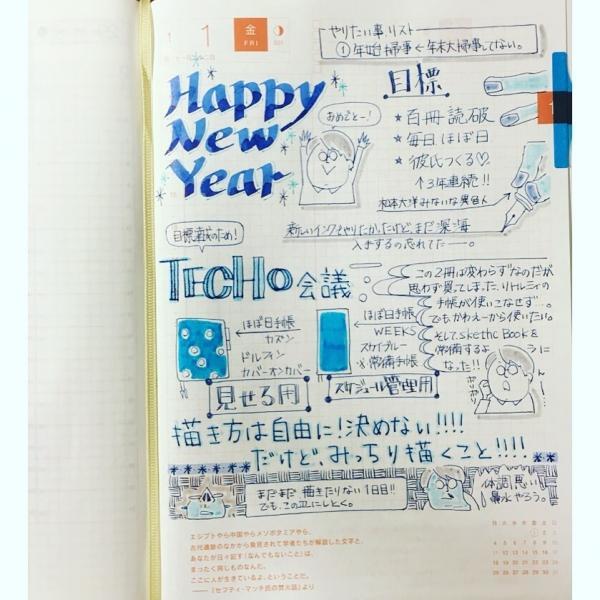 1 1 金
FRI
やりたい事リスト
① 年始掃事 ← 年末大掃事してない。
Happy
New
Year
おめでとー!
目標
★ 百冊読破
★ 毎日ほぼ日
★ 彼氏つくる♡
↑3年連続!!
松本大洋みないな異色人
新しいインクもやりたかったけど、まだ深海
入れするの忘れてたー。
目標達成のため!
TECHO会議
この2冊は変わらずなのだが
思わず買ってしまった、リトルミィの
手帳が使いこなせず…。
でもかわえーから使いたい。
そしてskethc Book &
常備するよ
うに
なった!!
んー!
ポリポリ
←ほぼ日手帳
カズン
ドルフィン
カバーオンカバー
←ほぼ日手帳
WEEKS
スカイブルー
※常備手帳
見せる用
スケジュール管理用
描き方は自由に!決めない!!!!
だけど、みっちり描くこと!!!!
まだまだ描きたりない1日目!!
でも、この辺にしとく。
体調悪い
風水やろう。
エジプトやら中国やらメソポタミアやら、
古代遺跡のなかから発見されて学者たちが解読した文字と、
あなたが日々記す「なんでもないこと」は、
まったく同じものなんだ。
ここに人が生きているよ、ということだ。
——『セフティ・マッチ氏の焚火話』より
月 火 水 木 金 土 日
1 2 3
4 5 6 7 8 9 10
11 12 13 14 15 16 17
18 19 20 21 22 23 24
25 26 27 28 29 30 31